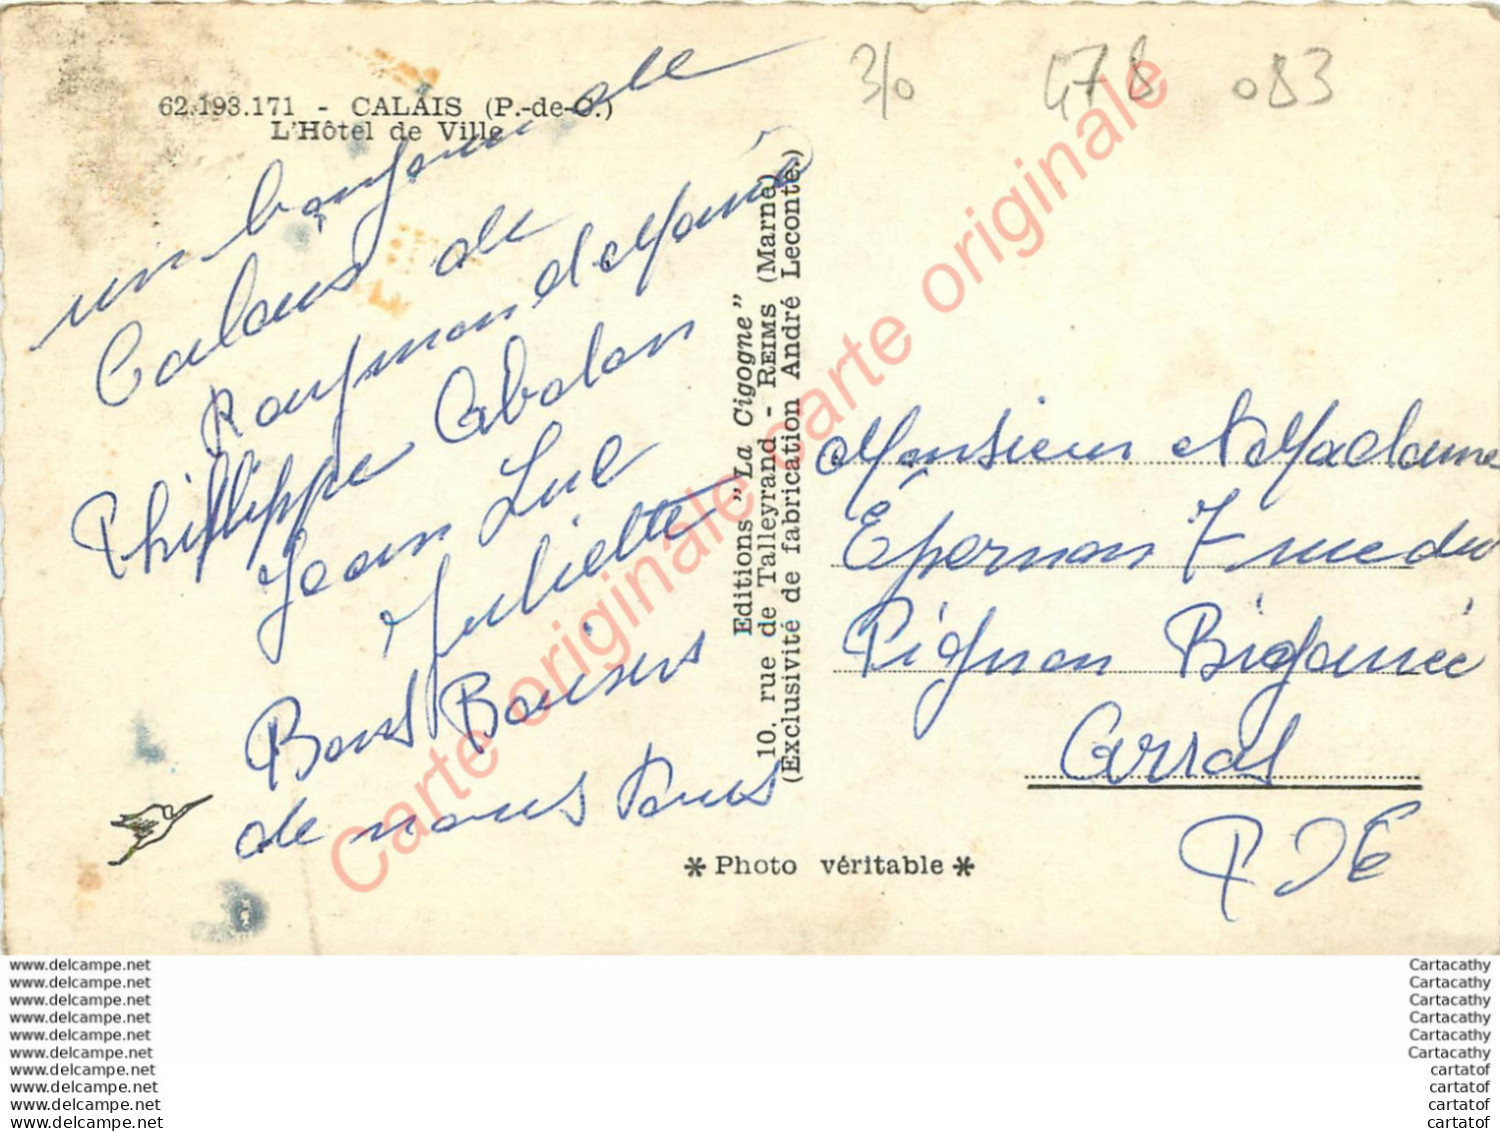 3/0 478 083
62.193.171 - CALAIS (P.-de-C.)
L'Hôtel de Ville
un bonjour de
Calais de
Raymonde Mario
Phillippe
Jean Luc
Juliette
Bons Baisers
de nous tous
Editions "La Cigogne"
10. rue de Talleyrand - REIMS (Marne)
(Exclusivité de fabrication André Leconte.)
Monsieur Madame
Epernon 7 rue du
Pignon Bigarnée
Arras
P D C
* Photo véritable *
Carte originale carte originale
www.delcampe.net
www.delcampe.net
www.delcampe.net
www.delcampe.net
www.delcampe.net
www.delcampe.net
www.delcampe.net
www.delcampe.net
www.delcampe.net
www.delcampe.net
Cartacathy
Cartacathy
Cartacathy
Cartacathy
Cartacathy
Cartacathy
cartatof
cartatof
cartatof
cartatof